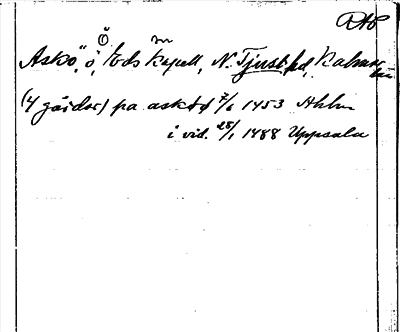 RAP
Ö sn
Askö, ö, Eds kapell, N. Tjust hd, Kalmar län
(4 gårdar) pa asköö 7/6 1453
i vid. 25/1 1488 Uppsala